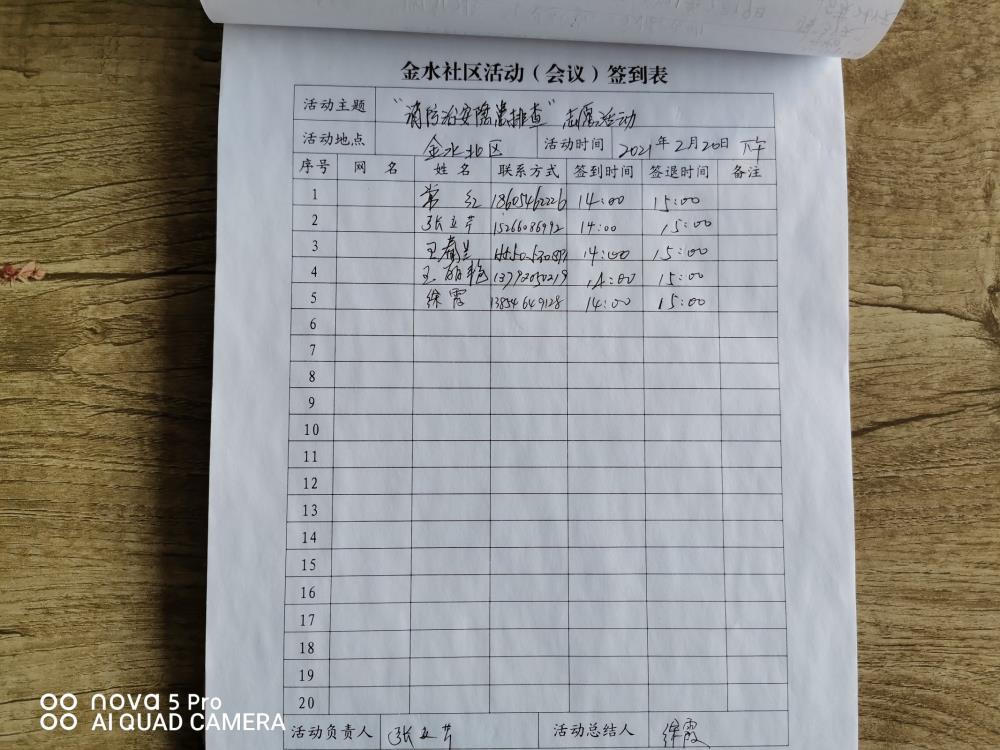 金水社区活动（会议）签到表
活动主题 “消防治安隐患排查”志愿活动
活动地点 金水北区 活动时间 2021年2月20日 下午
序号 网 名 姓 名 联系方式 签到时间 签退时间 备注
1 常 红 18605462226 14:00 15:00
2 张立芹 15266036992 14:00 15:00
3 14:00 15:00
4 王丽艳 13792050219 14:00 15:00
5 徐霞 13854649128 14:00 15:00
6
7
8
9
10
11
12
13
14
15
16
17
18
19
20
活动负责人 张立芹 活动总结人 徐霞
nova 5 Pro
AI QUAD CAMERA